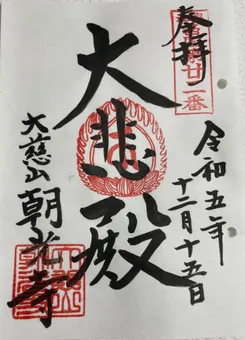 奉拝
廿二番
令和五年
十二月十五日
大悲殿
大慈山
朝光寺